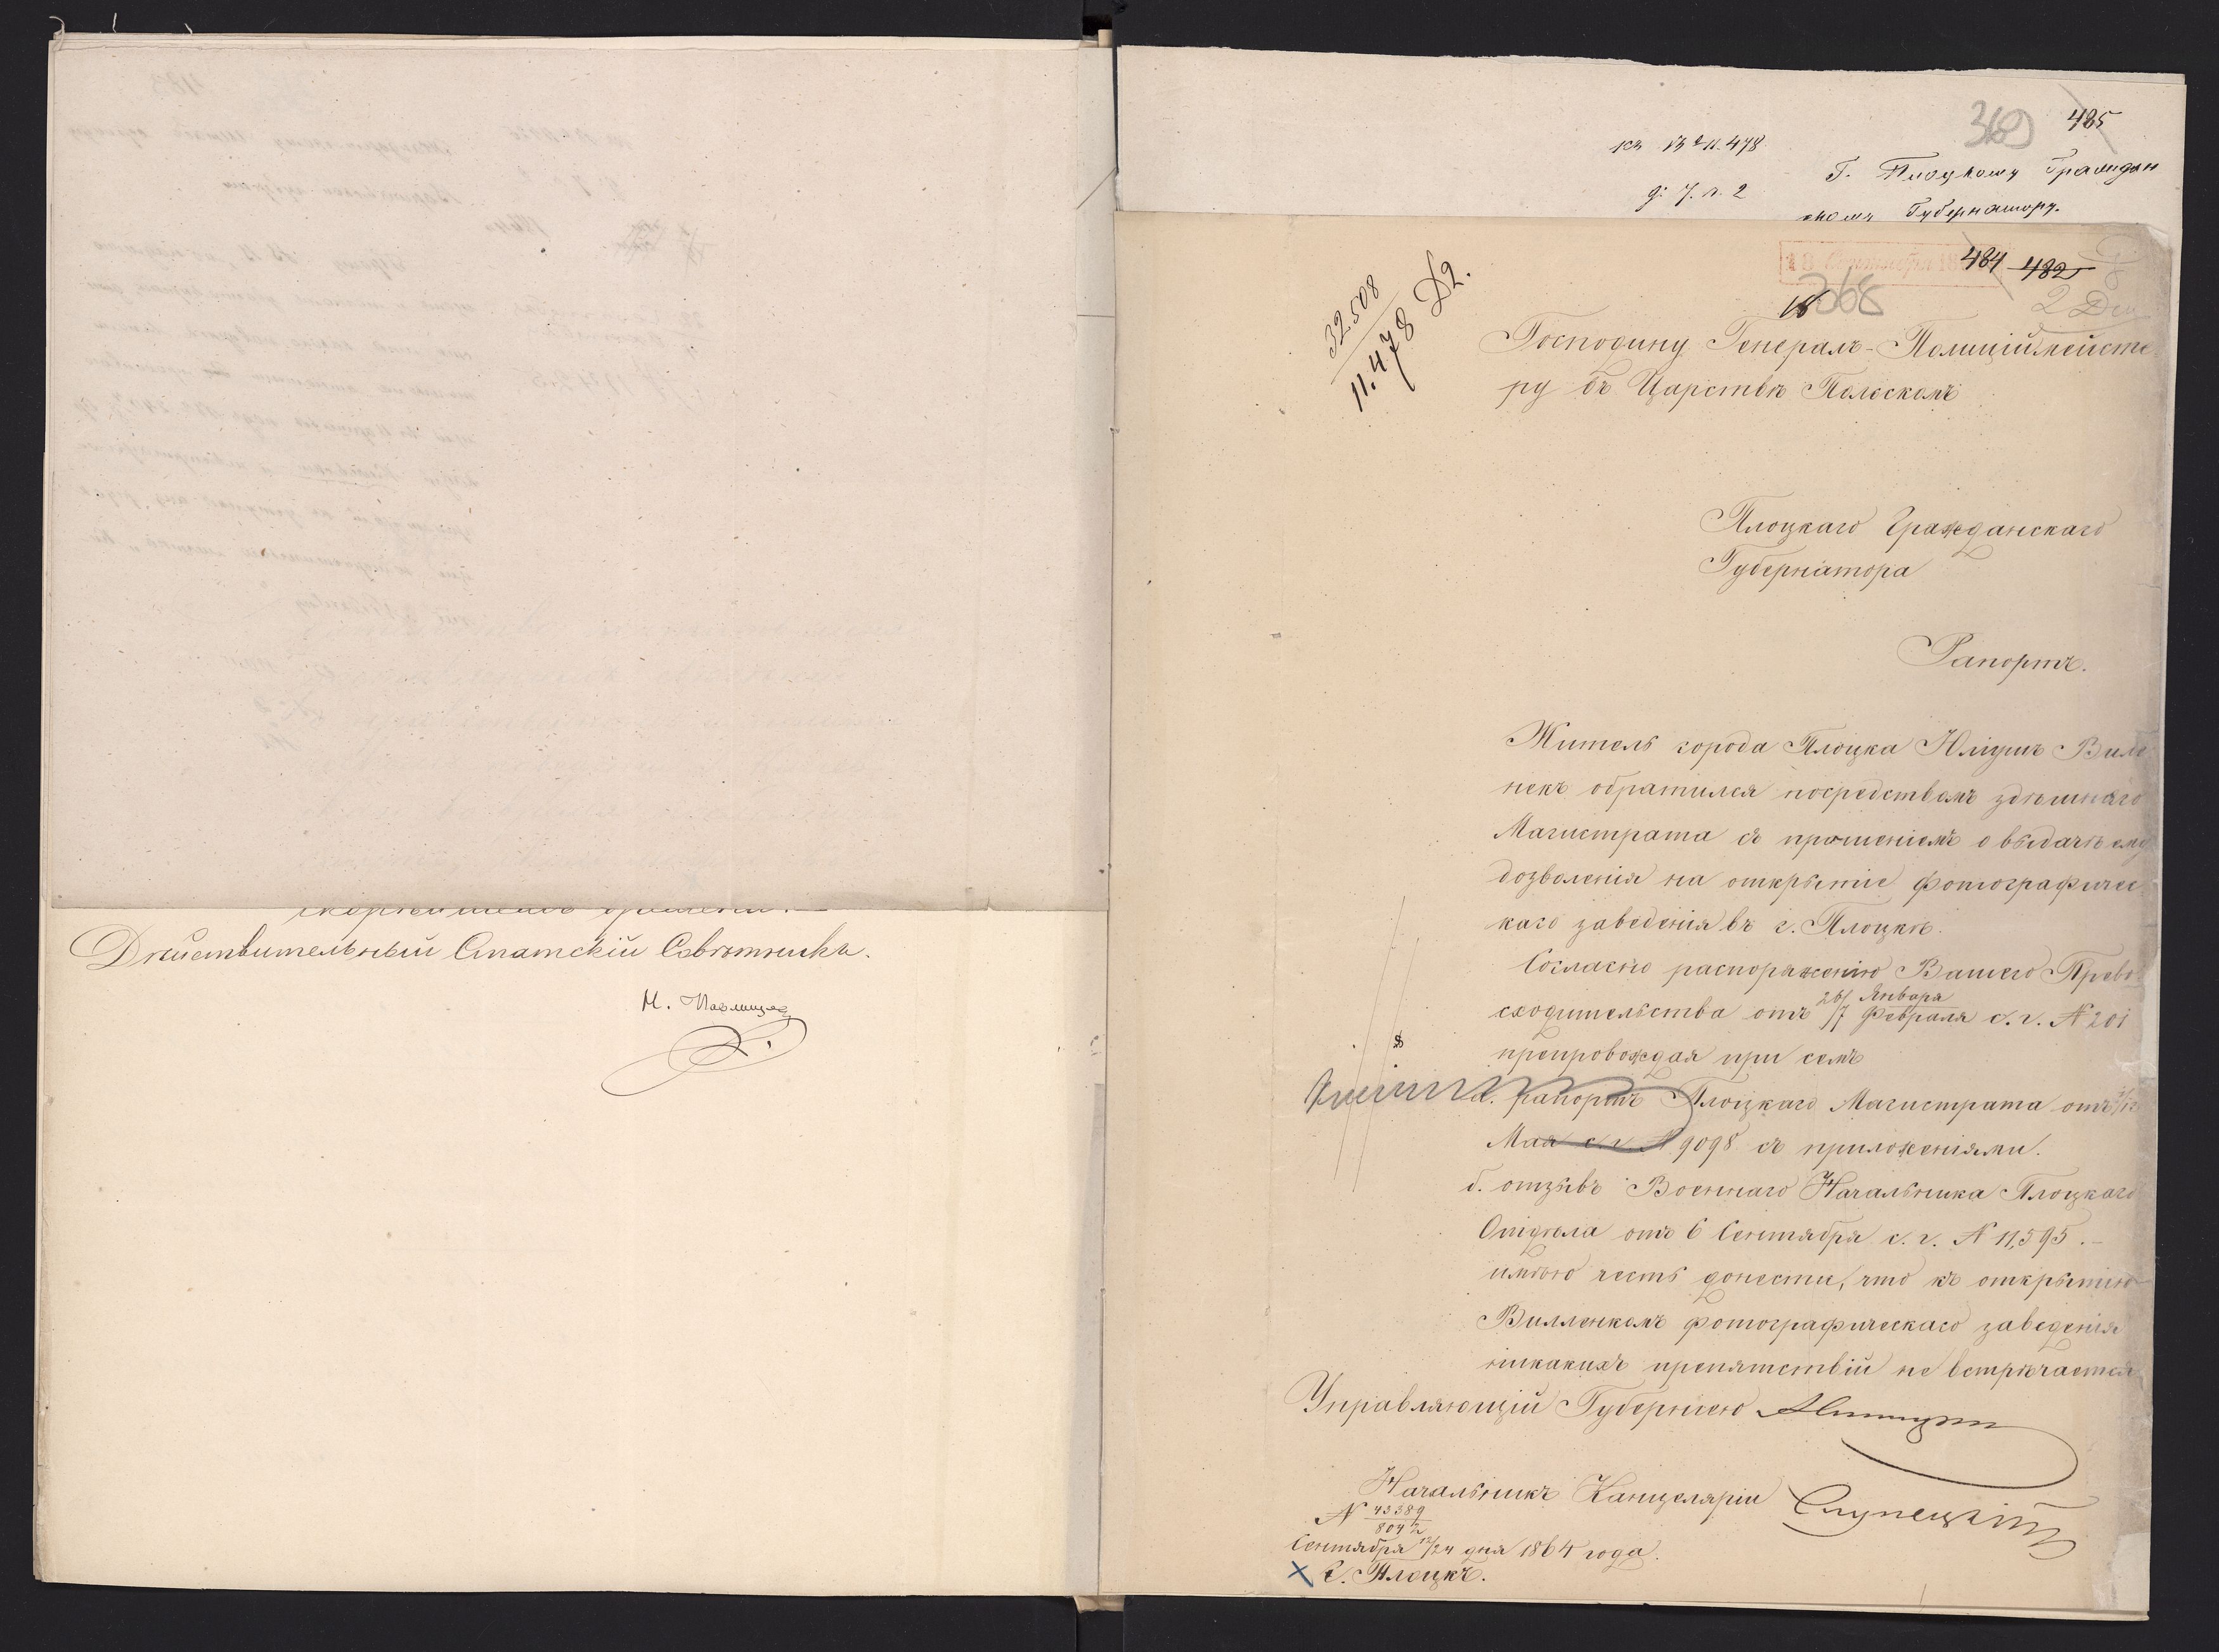 Действительный Статскій Совѣтникъ.
Н. Павлищев
369 485
къ № 11.478
д. 7. л. 2
Г. Плоцкому Граждан
скому Губернатору.
484 482
368
2
32508
11.478 Д2.
Господину Генералъ-Полиціймейсте
ру въ Царствѣ Польскомъ
Плоцкаго Гражданскаго
Губернатора
Рапортъ.
Житель города Плоцка Юліушъ Виле
некъ обратился посредствомъ здѣшняго
Магистрата съ прошеніемъ о выдачѣ ему
дозволенія на открытіе фотографичес
каго заведенія въ г. Плоцкѣ.
Согласно распоряженію Вашего Прево
сходительства отъ 26/7 Января Февраля с. г. № 201
препровождая при семъ
а. рапортъ Плоцкаго Магистрата отъ
Мая с. г. № 9098 съ приложеніями.
б. отзывъ Военнаго Начальника Плоцкаго
Отдѣла отъ 6 Сентября с. г. № 11,595.-
имѣю честь донести, что къ открытію
Вилленкомъ фотографическаго заведенія
никакихъ препятствій не встрѣчается
Управляющій Губерніею
Начальникъ Канцеляріи Слупецкій
№ 43389
8042
Сентября 12/24 дня 1864 года.
г. Плоцкъ.